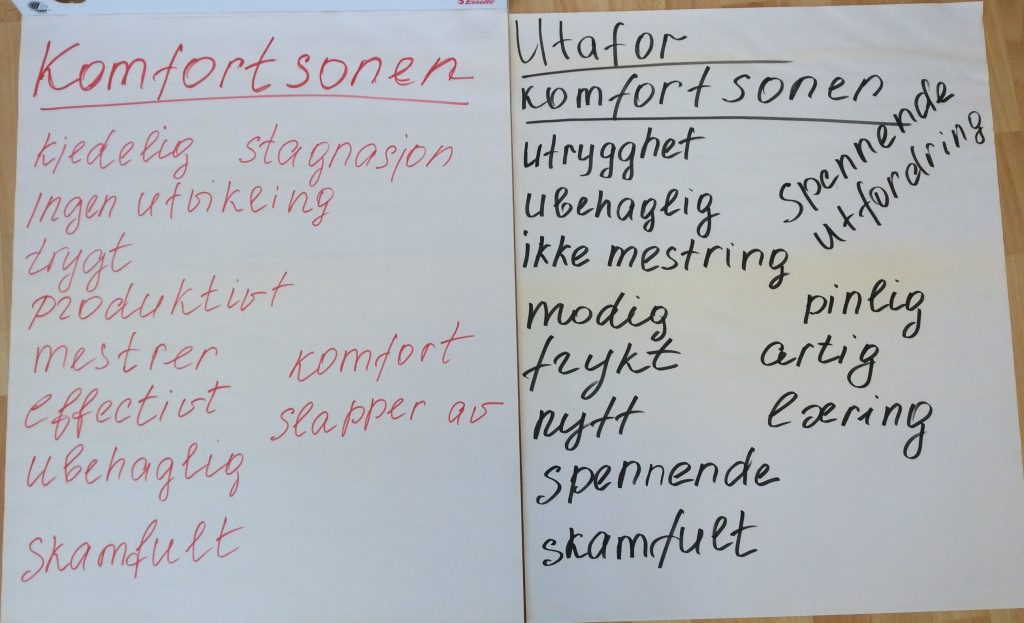 Esselte
Komfortsonen
kjedelig stagnasjon
Ingen utvikling
trygt
produktivt
mestrer komfort
effectivt slapper av
Ubehaglig
Skamfult
Utafor
komfortsonen
utrygghet
ubehaglig
ikke mestring
spennende
utfordring
modig pinlig
frykt artig
nytt læring
spennende
skamfult